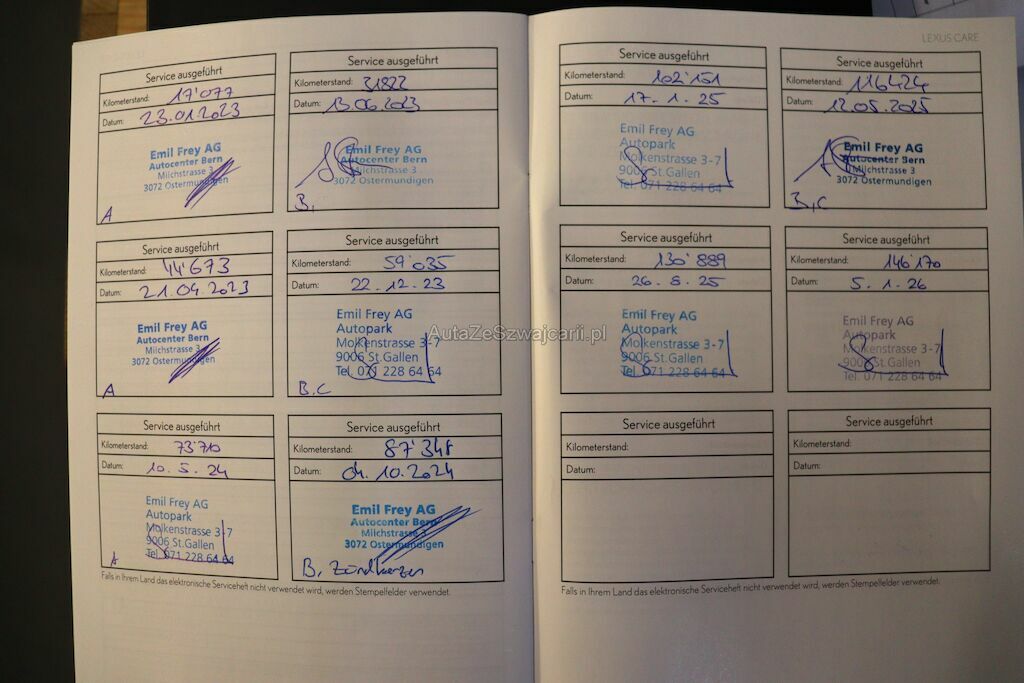 LEXUS CARE
Service ausgeführt
Kilometerstand: 17'077
Datum: 23.01.2023
Emil Frey AG
Autocenter Bern
Milchstrasse 3
3072 Ostermundigen
A
Service ausgeführt
Kilometerstand: 31822
Datum: 13.06.2023
Emil Frey AG
Autocenter Bern
Milchstrasse 3
3072 Ostermundigen
B,
Service ausgeführt
Kilometerstand: 44'673
Datum: 21.09.2023
Emil Frey AG
Autocenter Bern
Milchstrasse 3
3072 Ostermundigen
A
Service ausgeführt
Kilometerstand: 59'035
Datum: 22.12.23
Emil Frey AG
Autopark
Molkenstrasse 3-7
9006 St.Gallen
Tel. 071 228 64 64
B,C
Service ausgeführt
Kilometerstand: 73'710
Datum: 10.5.24
Emil Frey AG
Autopark
Molkenstrasse 3-7
9006 St.Gallen
Tel. 071 228 64 64
A
Service ausgeführt
Kilometerstand: 87'348
Datum: 04.10.2024
Emil Frey AG
Autocenter Bern
Milchstrasse 3
3072 Ostermundigen
B, Zündkerzen
Falls in Ihrem Land das elektronische Serviceheft nicht verwendet wird, werden Stempelfelder verwendet.
Service ausgeführt
Kilometerstand: 102'151
Datum: 17.1.25
Emil Frey AG
Autopark
Molkenstrasse 3-7
9006 St.Gallen
Tel. 071 228 64 64
Service ausgeführt
Kilometerstand: 116424
Datum: 12.05.2025
Emil Frey AG
Autocenter Bern
Milchstrasse 3
3072 Ostermundigen
B,C
Service ausgeführt
Kilometerstand: 130'889
Datum: 26.8.25
Emil Frey AG
Autopark
Molkenstrasse 3-7
9006 St.Gallen
Tel. 071 228 64 64
Service ausgeführt
Kilometerstand: 146'170
Datum: 5.1.26
Emil Frey AG
Autopark
Molkenstrasse 3-7
9006 St.Gallen
Tel. 071 228 64 64
Service ausgeführt
Kilometerstand:
Datum:
Service ausgeführt
Kilometerstand:
Datum:
Falls in Ihrem Land das elektronische Serviceheft nicht verwendet wird, werden Stempelfelder verwendet.
AutaZeSzwajcarii.pl